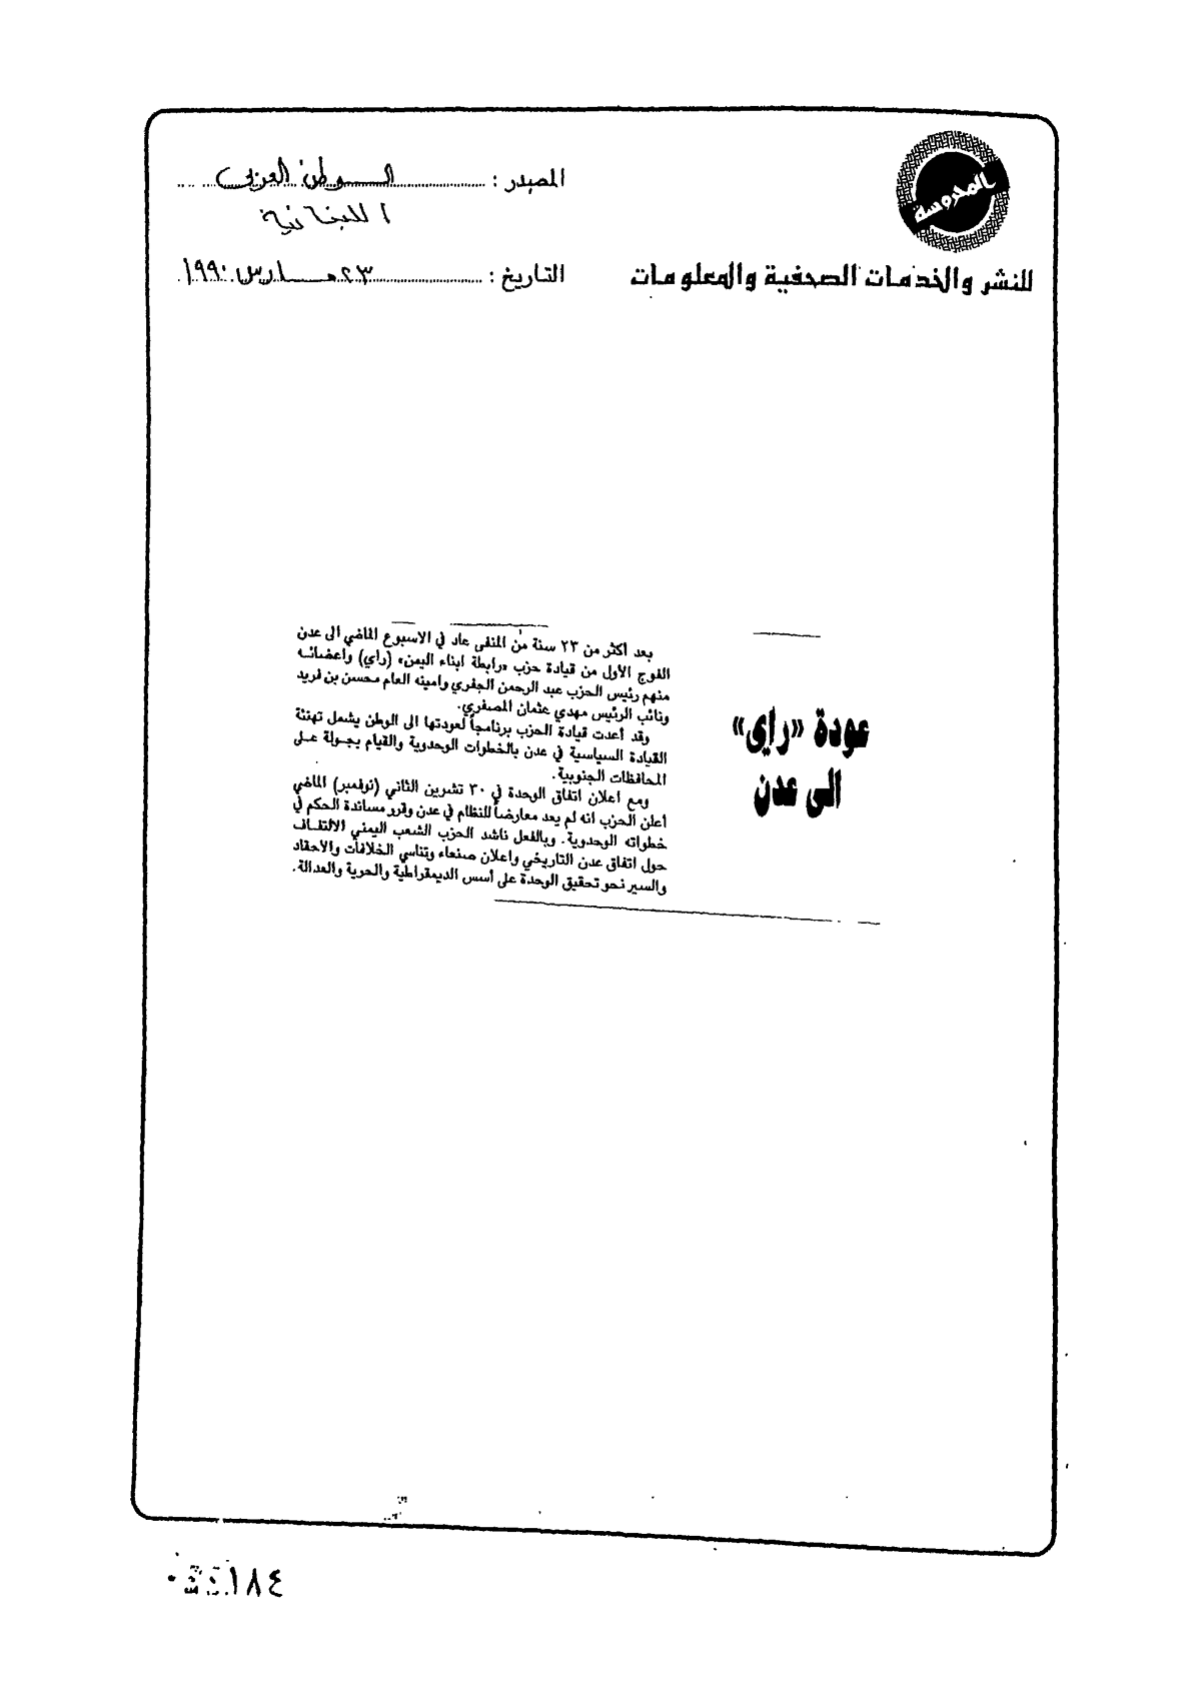 المحروسة
للنشر والخدمات الصحفية والمعلومات
المصدر : الوطن العربي
اللبنانية
التاريخ : ٢٣ مارس ١٩٩٠
عودة «راي»
الى عدن
بعد أكثر من ٢٣ سنة من المنفى عاد في الاسبوع الماضي الى عدن
الفوج الأول من قيادة حزب «رابطة ابناء اليمن» (راي) واعضائه
منهم رئيس الحزب عبد الرحمن الجفري وامينه العام محسن بن فريد
ونائب الرئيس مهدي عثمان المصفري.
وقد أعدت قيادة الحزب برنامجاً لعودتها الى الوطن يشمل تهنئة
القيادة السياسية في عدن بالخطوات الوحدوية والقيام بجولة على
المحافظات الجنوبية.
ومع اعلان اتفاق الوحدة في ٣٠ تشرين الثاني (نوفمبر) الماضي
أعلن الحزب انه لم يعد معارضاً للنظام في عدن وقرر مساندة الحكم في
خطواته الوحدوية. وبالفعل ناشد الحزب الشعب اليمني الالتفاف
حول اتفاق عدن التاريخي واعلان صنعاء وتناسي الخلافات والاحقاد
والسير نحو تحقيق الوحدة على أسس الديمقراطية والحرية والعدالة.